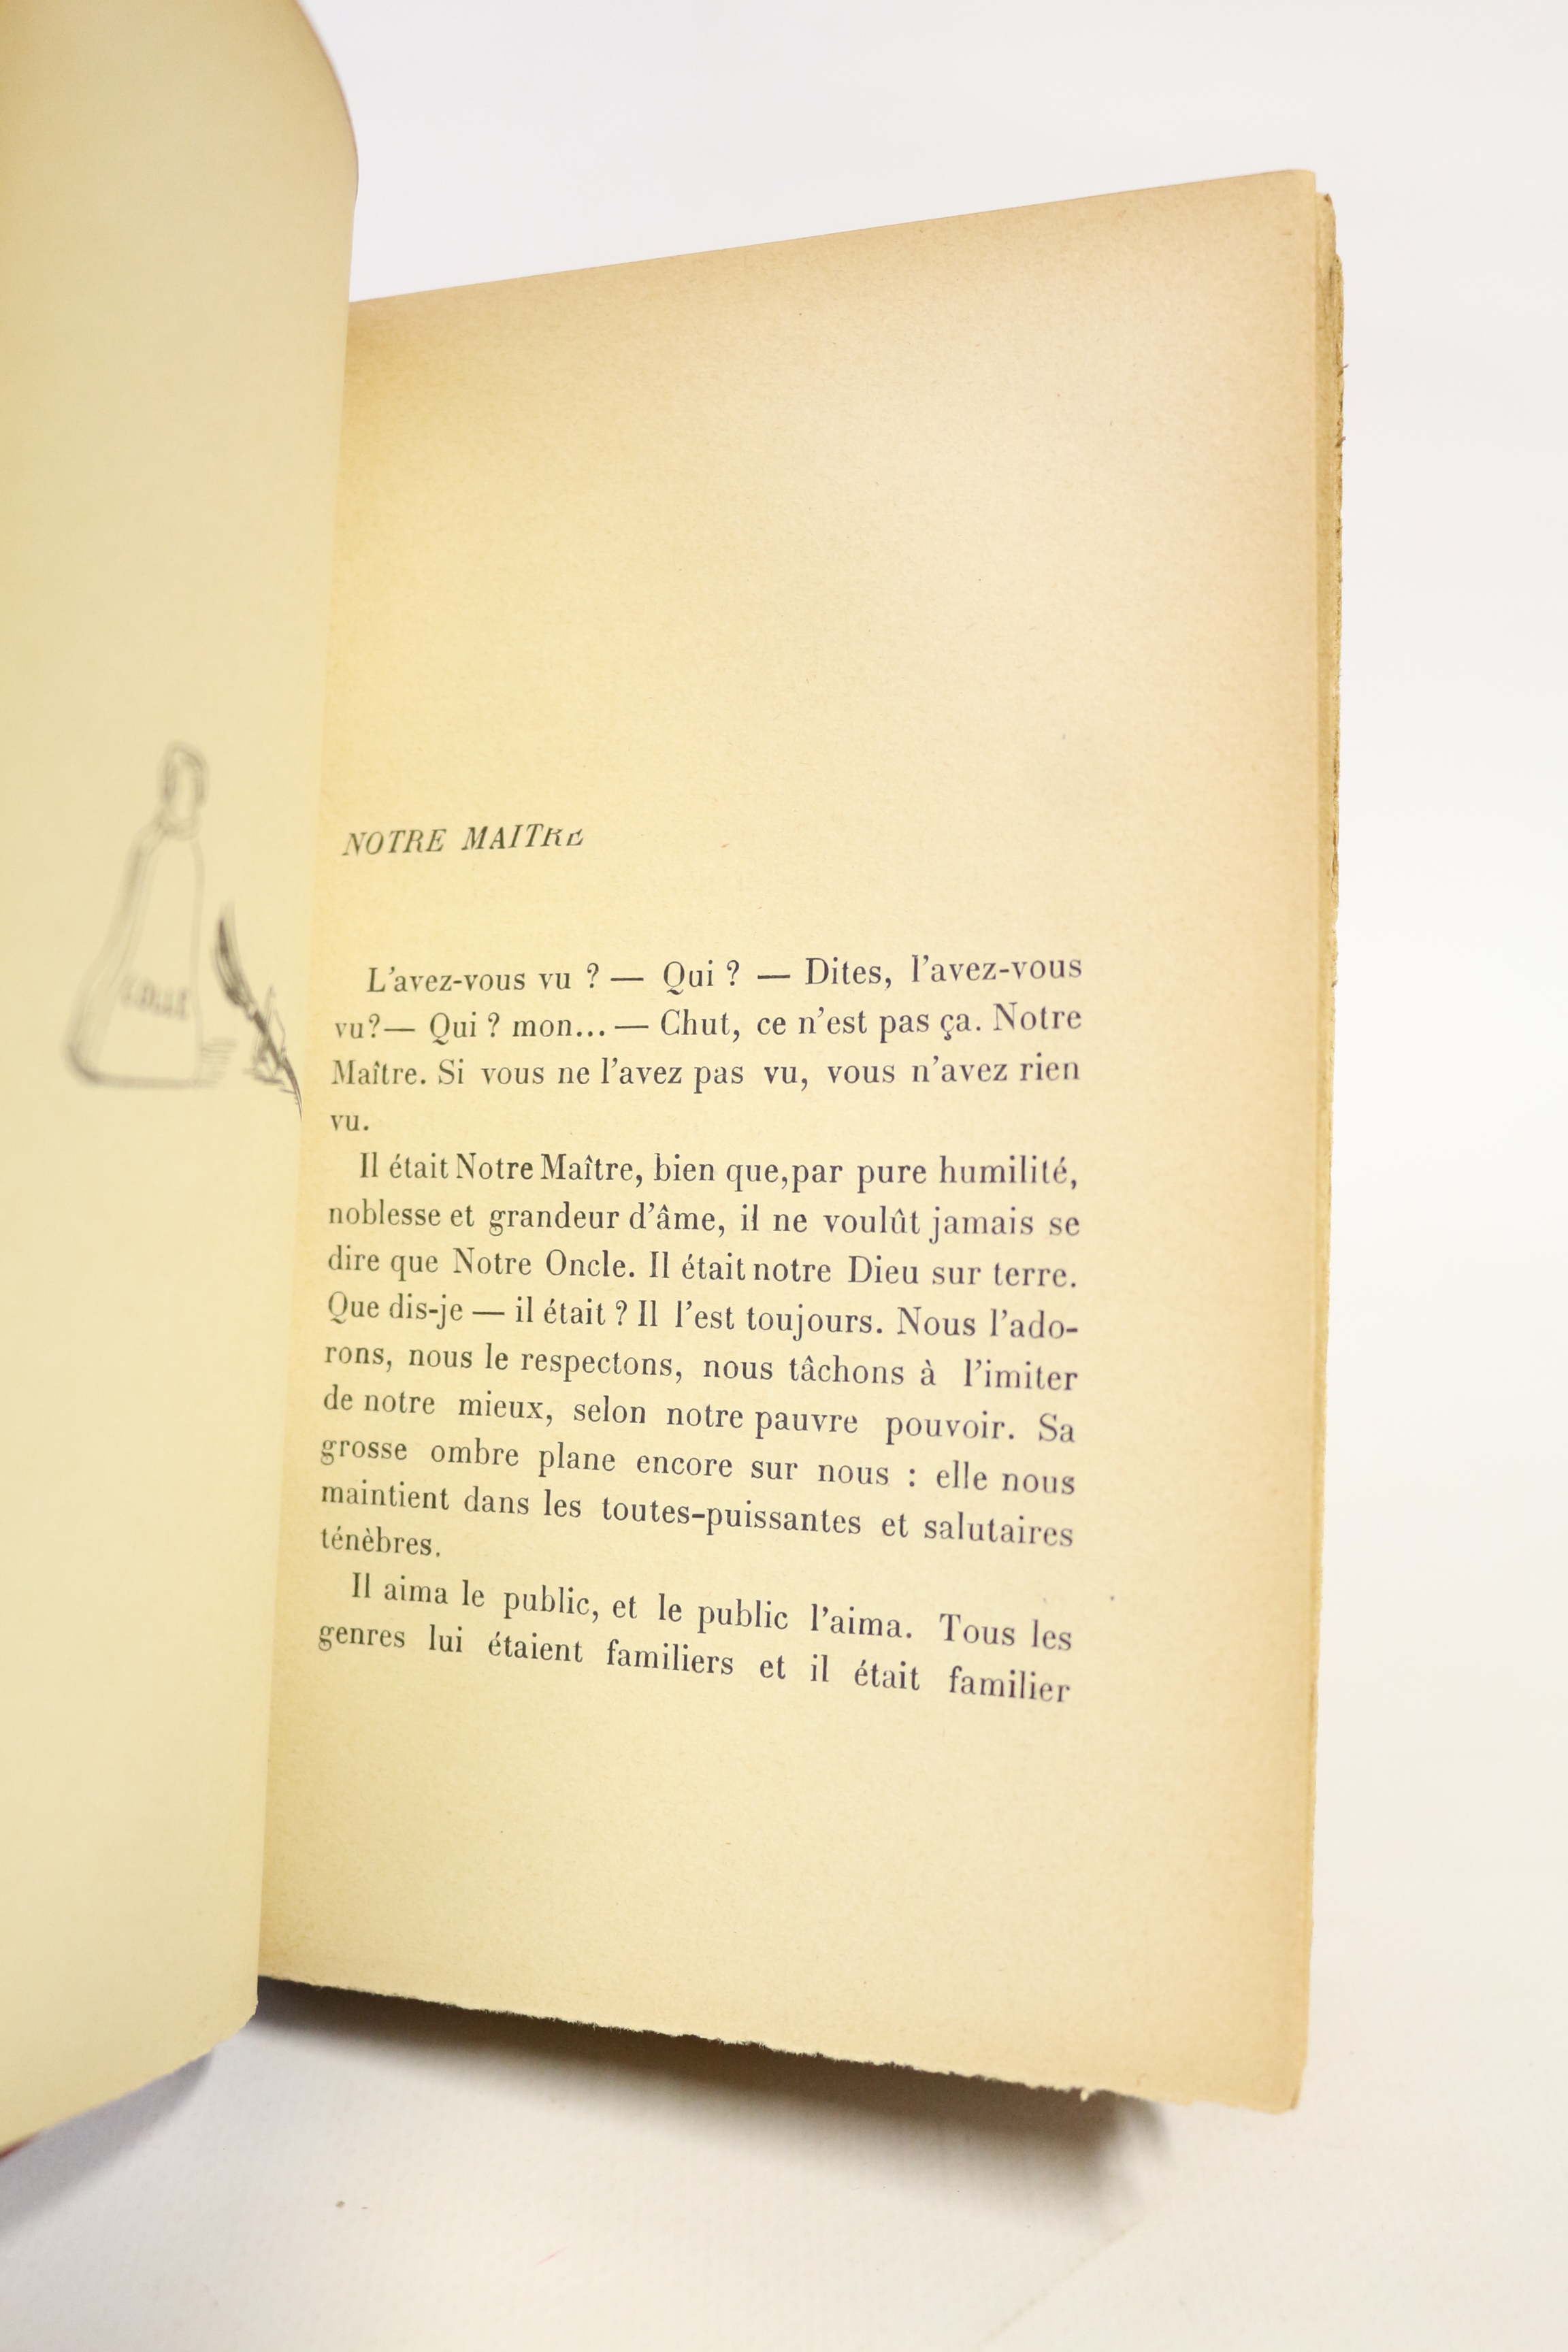 NOTRE MAITRE
L'avez-vous vu ? — Qui ? — Dites, l'avez-vous
vu?— Qui ? mon... — Chut, ce n'est pas ça. Notre
Maître. Si vous ne l'avez pas vu, vous n'avez rien
vu.
Il était Notre Maître, bien que,par pure humilité,
noblesse et grandeur d'âme, il ne voulût jamais se
dire que Notre Oncle. Il était notre Dieu sur terre.
Que dis-je — il était ? Il l'est toujours. Nous l'ado-
rons, nous le respectons, nous tâchons à l'imiter
de notre mieux, selon notre pauvre pouvoir. Sa
grosse ombre plane encore sur nous : elle nous
maintient dans les toutes-puissantes et salutaires
ténèbres.
Il aima le public, et le public l'aima. Tous les
genres lui étaient familiers et il était familier